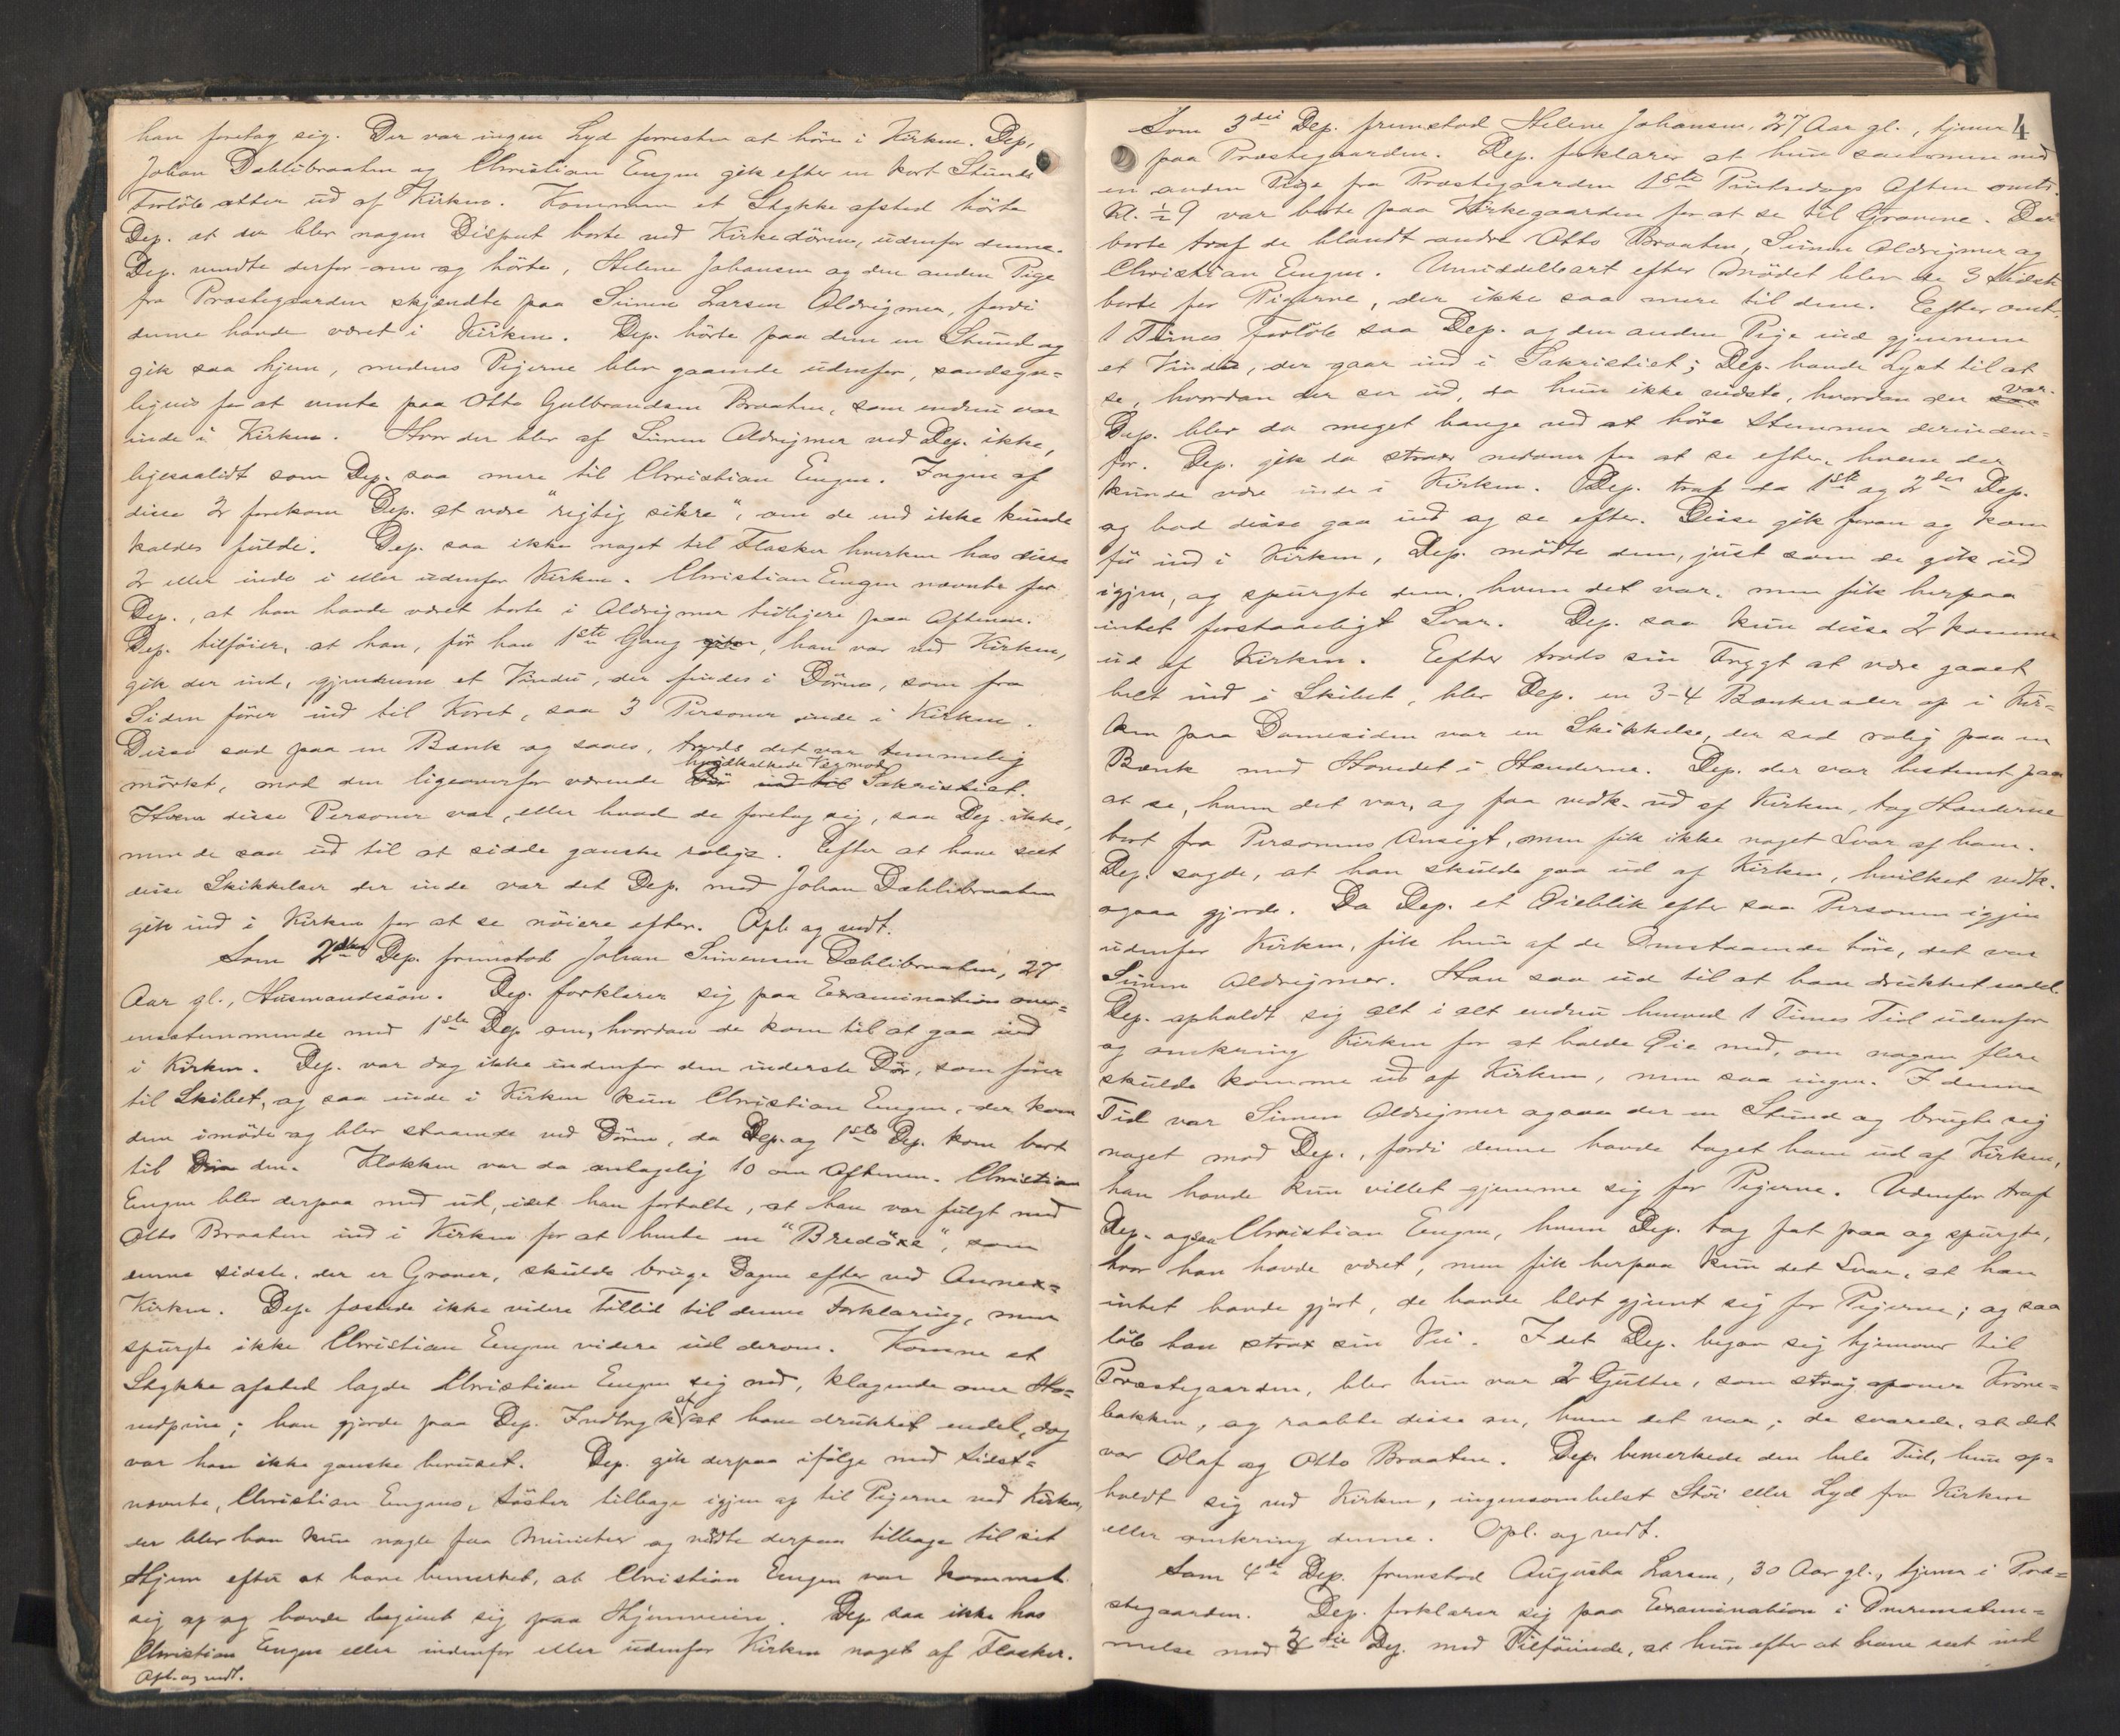 han foretog sig. Der var ingen Lyd forresten at höre i Kirken. Dep,
Johan Dæhlibraaten og Christian Engen gik efter en kort Stunds
Forlöb atter ud af Kirken. Kommen et Stykke afsted hörte
Dep. at der blev nogen Disput borte ved Kirkedören, udenfor denne.
Dep. vendte derfor om og hörte, Helene Johansen og den anden Pige
fra Præstegaarden skjændte paa Simen Larsen Aldrigmer, fordi
denne havde været i Kirken. Dep. hörte paa dem en Stund og
gik saa hjem, medens Pigerne blev gaaende udenfor, sandsyn=
ligvis for at vente paa Otto Gulbrandsen Braaten, som endnu var
inde i Kirken. Hvor der blev af Simen Aldrigmer ved Dep. ikke,
ligesaalidt som Dep. saa mere til Christian Engen. Ingen af
disse 2 forekom Dep. at være "rigtig sikre", om de end ikke kunde
kaldes fulde. Dep. saa ikke noget til Flasker hverken hos disse
2 eller inde i eller udenfor Kirken. Christian Engen nævnte for
Dep., at han havde været borte i Aldrigmer tidligere paa Aftenen.
Dep. tilföier, at han, för han 1ste Gang, han var ved Kirken,
gik der ind, gjennem et Vindu, der findes i Dören, som fra
Siden förer ind til Koret, saa 3 Personer inde i Kirken.
Disse sad paa en Bænk og saaes, trods det var temmelig
mörkt, mod den ligeoverfor værende hvidkalkede Væg mod Dör ind til Sakristiet.
Hvem disse Personer var, eller hvad de foretog sig, saa Dep. ikke,
men de saa ud til at sidde ganske rolige. Efter at have seet
disse Skikkelser der inde var det Dep. med Johan Dæhlibraaten
gik ind i Kirken for at se nöiere efter. Opl. og vedt.
Som 2den Dep. fremstod Johan Simensen Dæhlibraaten, 27
Aar gl., Husmandssön. Dep. forklarer sig paa Examination over=
ensstemmende med 1ste Dep om, hvordan de kom til at gaa ind
i Kirken. Dep. var dog ikke indenfor den inderste Dör, som förer
til Skibet, og saa inde i Kirken kun Christian Engen, der kom
dem imöde og blev staaende ved Dören, da Dep. og 1ste Dep. kom bort
til den. Klokken var da antagelig 10 om Aftenen. Christian
Engen blev derpaa med ud, idet han fortalte, at han var fulgt med
Otto Braaten ind i Kirken for at hente en "Bredöxe", som
denne sidste, der er Graver, skulde bruge Dagen efter ved Annex=
Kirken. Dep. fæstede ikke videre Tillid til denne Forklaring, men
spurgte ikke Christian Engen videre ud derom. Komne et
Stykke afsted lagde Christian Engen sig ned, klagende over Ho=
vedpine; han gjorde paa Dep. Indtryk af at have drukket endel, dog
var han ikke ganske beruset. Dep. gik derpaa ifölge med sidst=
nævnte, Christian Engens, söster tilbage igjen op til Pigerne ved Kirken,
der blev han kun nogle faa Minutter og vendte derpaa tilbage til sit
Hjem efter at have bemærket, at Christian Engen var kommet
sig op og havde begivet sig paa Hjemveien. Dep. saa ikke hos
Christian Engen eller indenfor eller udenfor Kirken noget af Flasker.
Opl. og vedt.
4
Som 3die Dep. fremstod Helene Johansen, 27 Aar gl., tjener
paa Præstegaarden. Dep. forklarer at hun sammen med
en anden Pige fra Præstegaarden 1ste Pintsedags Aften omtr.
Kl. ½ 9 var borte paa Kirkegaarden for at se til Gravene. Der
borte traf de blandt andre Otto Braaten, Simen Aldrigmer og
Christian Engen. Umiddelbart efter Mödet blev de 3 sidste
borte for Pigerne, der ikke saa mere til dem. Efter omtr.
1 Times Forlöb saa Dep. og den anden Pige ind gjennem
et Vindu, der gaar ind i Sakristiet; Dep. havde Lyst til at
se, hvordan der ser ud, da hun ikke vidste, hvordan der var.
Dep. blev da meget bange ved at höre Stemmer derinden=
for. Dep. gik da strax nedover for at se efter, hvem der
kunde være inde i Kirken. Dep. traf da 1ste og 2den Dep.
og bad disse gaa ind og se efter. Disse gik foran og kom
för ind i Kirken, Dep. mödte dem, just som de gik ud
igjen, og spurgte dem, hvem det var, men fik herpaa
intet forstaaeligt Svar. Dep. saa kun disse 2 komme
ud af Kirken. Efter trods sin Frygt at være gaaet
helt ind i Skibet, blev Dep. en 3-4 Bænkerader op i Kir=
ken paa Damesiden var en Skikkelse, der sad rolig paa en
Bænk med Hovedet i Hænderne. Dep. der var bestemt paa
at se, hvem det var, og faa vedk. ud af Kirken, tog Hænderne
bort fra Personens Ansigt, men fik ikke noget Svar af ham.
Dep. sagde, at han skulde gaa ud af Kirken, hvilket vedk.
ogsaa gjorde. Da Dep. et Öieblik efter saa Personen igjen
udenfor Kirken, fik hun af de Omstaaende höre, det var
Simen Aldrigmer. Han saa ud til at have drukket endel.
Dep. opholdt sig alt i alt endnu henved 1 Times Tid udenfor
og omkring Kirken for at holde Öie med, om nogen flere
skulde komme ud af Kirken, men saa ingen. I denne
Tid var Simen Aldrigmer ogsaa der en Stund og brugte sig
noget mod Dep., fordi denne havde taget ham ud af Kirken,
han havde kun villet gjemme sig for Pigerne. Udenfor traf
Dep. ogsaa Christian Engen, hvem Dep. tog fat paa og spurgte,
hvor han havde været, men fik herpaa kun det Svar, at han
intet havde gjort, de havde blot gjemt sig for Pigerne; og saa
löb han strax sin Vei. Idet Dep. begav sig hjemover til
Præstegaarden, blev hun var 2 Gutter, som opover Krone=
bakken, og raabte disse an, hvem det var; de svarede, at det
var Olaf og Otto Braaten. Dep. bemerkede den hele Tid, hun op=
holdt sig ved Kirken, ingensomhelst Stöi eller Lyd fra Kirken
eller omkring denne. Opl. og vedt.
Som 4de Dep. fremstod Augusta Larsen, 30 Aar gl., tjener i Præ=
stegaarden. Dep. forklarer sig paa Examination i Overensstem=
melse med 3die Dep. med Tilföiende, at hun efter at have seet ind